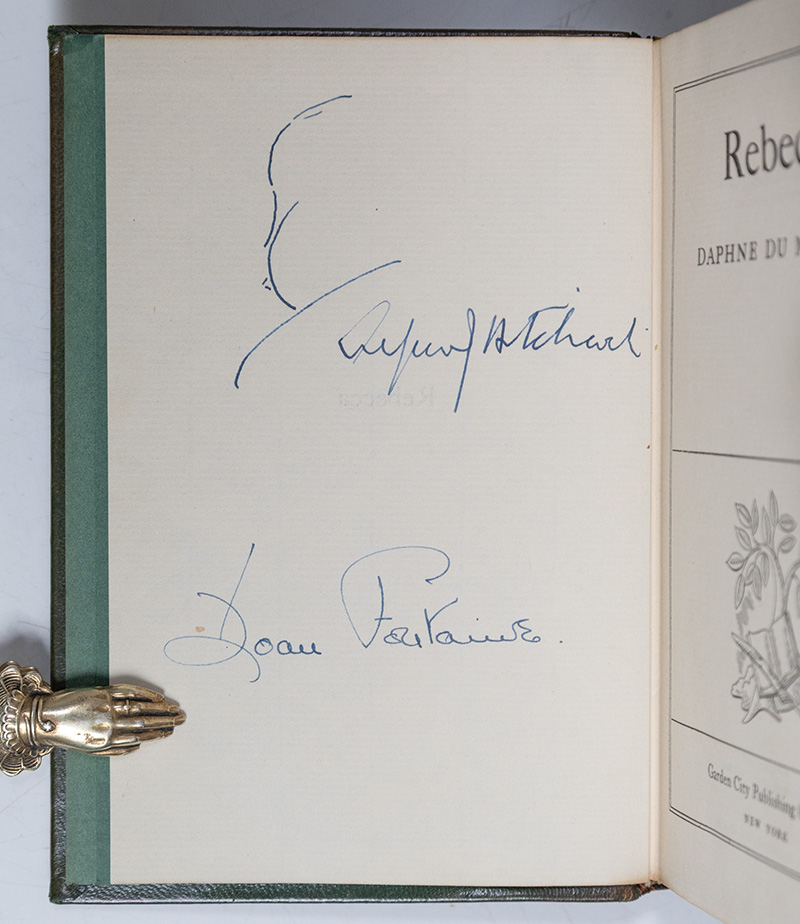 Alfred J Hitchcock
Rebecca
Joan Fontaine.
Rebec
DAPHNE DU M
Garden City Publishing
NEW YORK